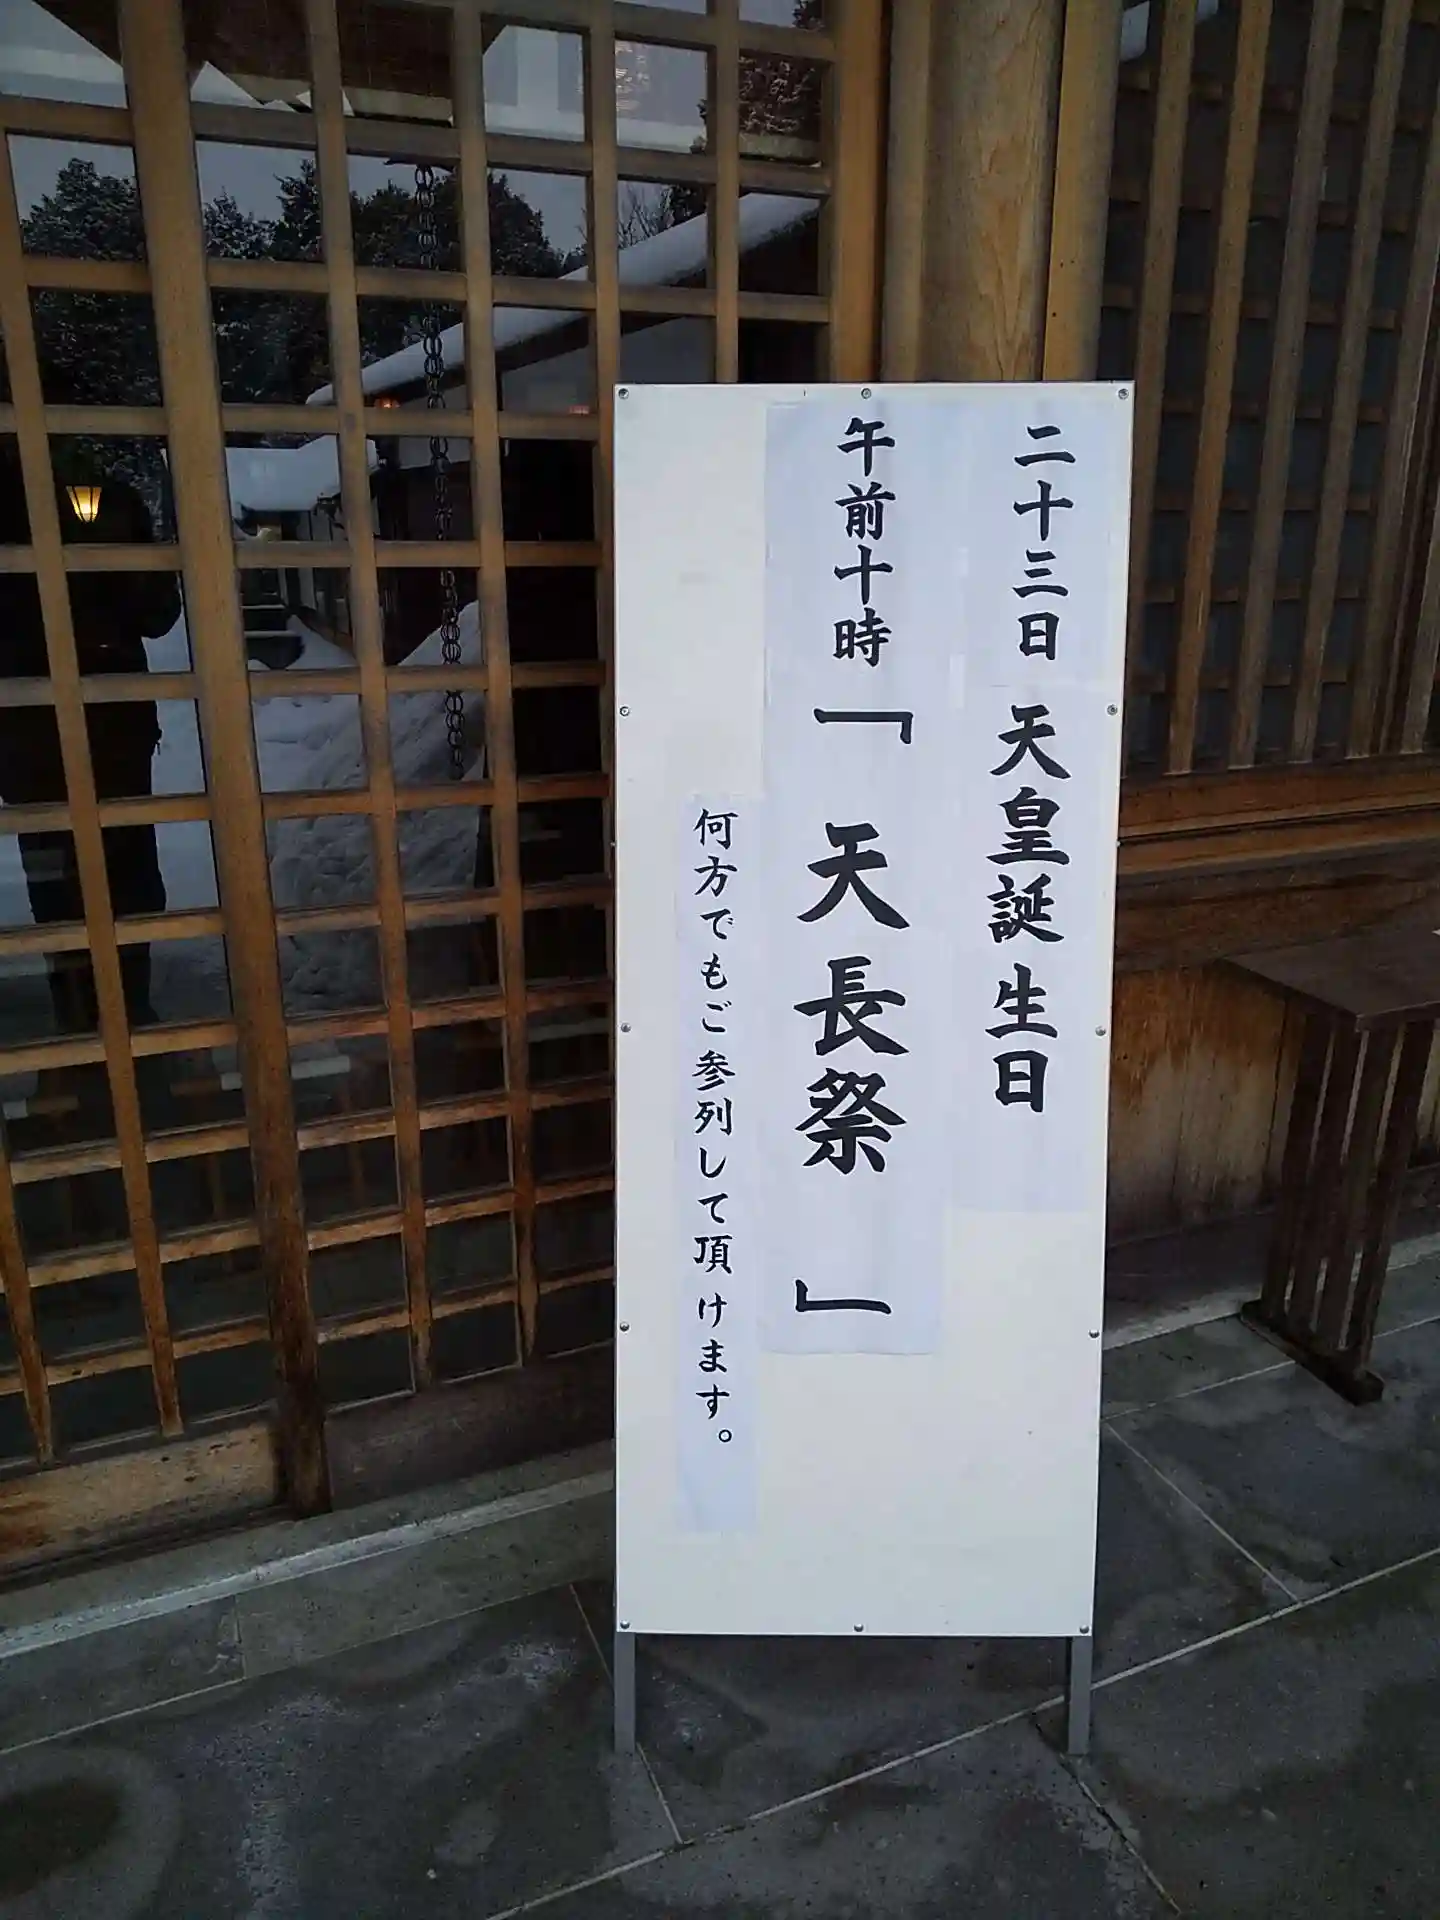 二十三日 天皇誕生日
午前十時「天長祭」
何方でもご参列して頂けます。